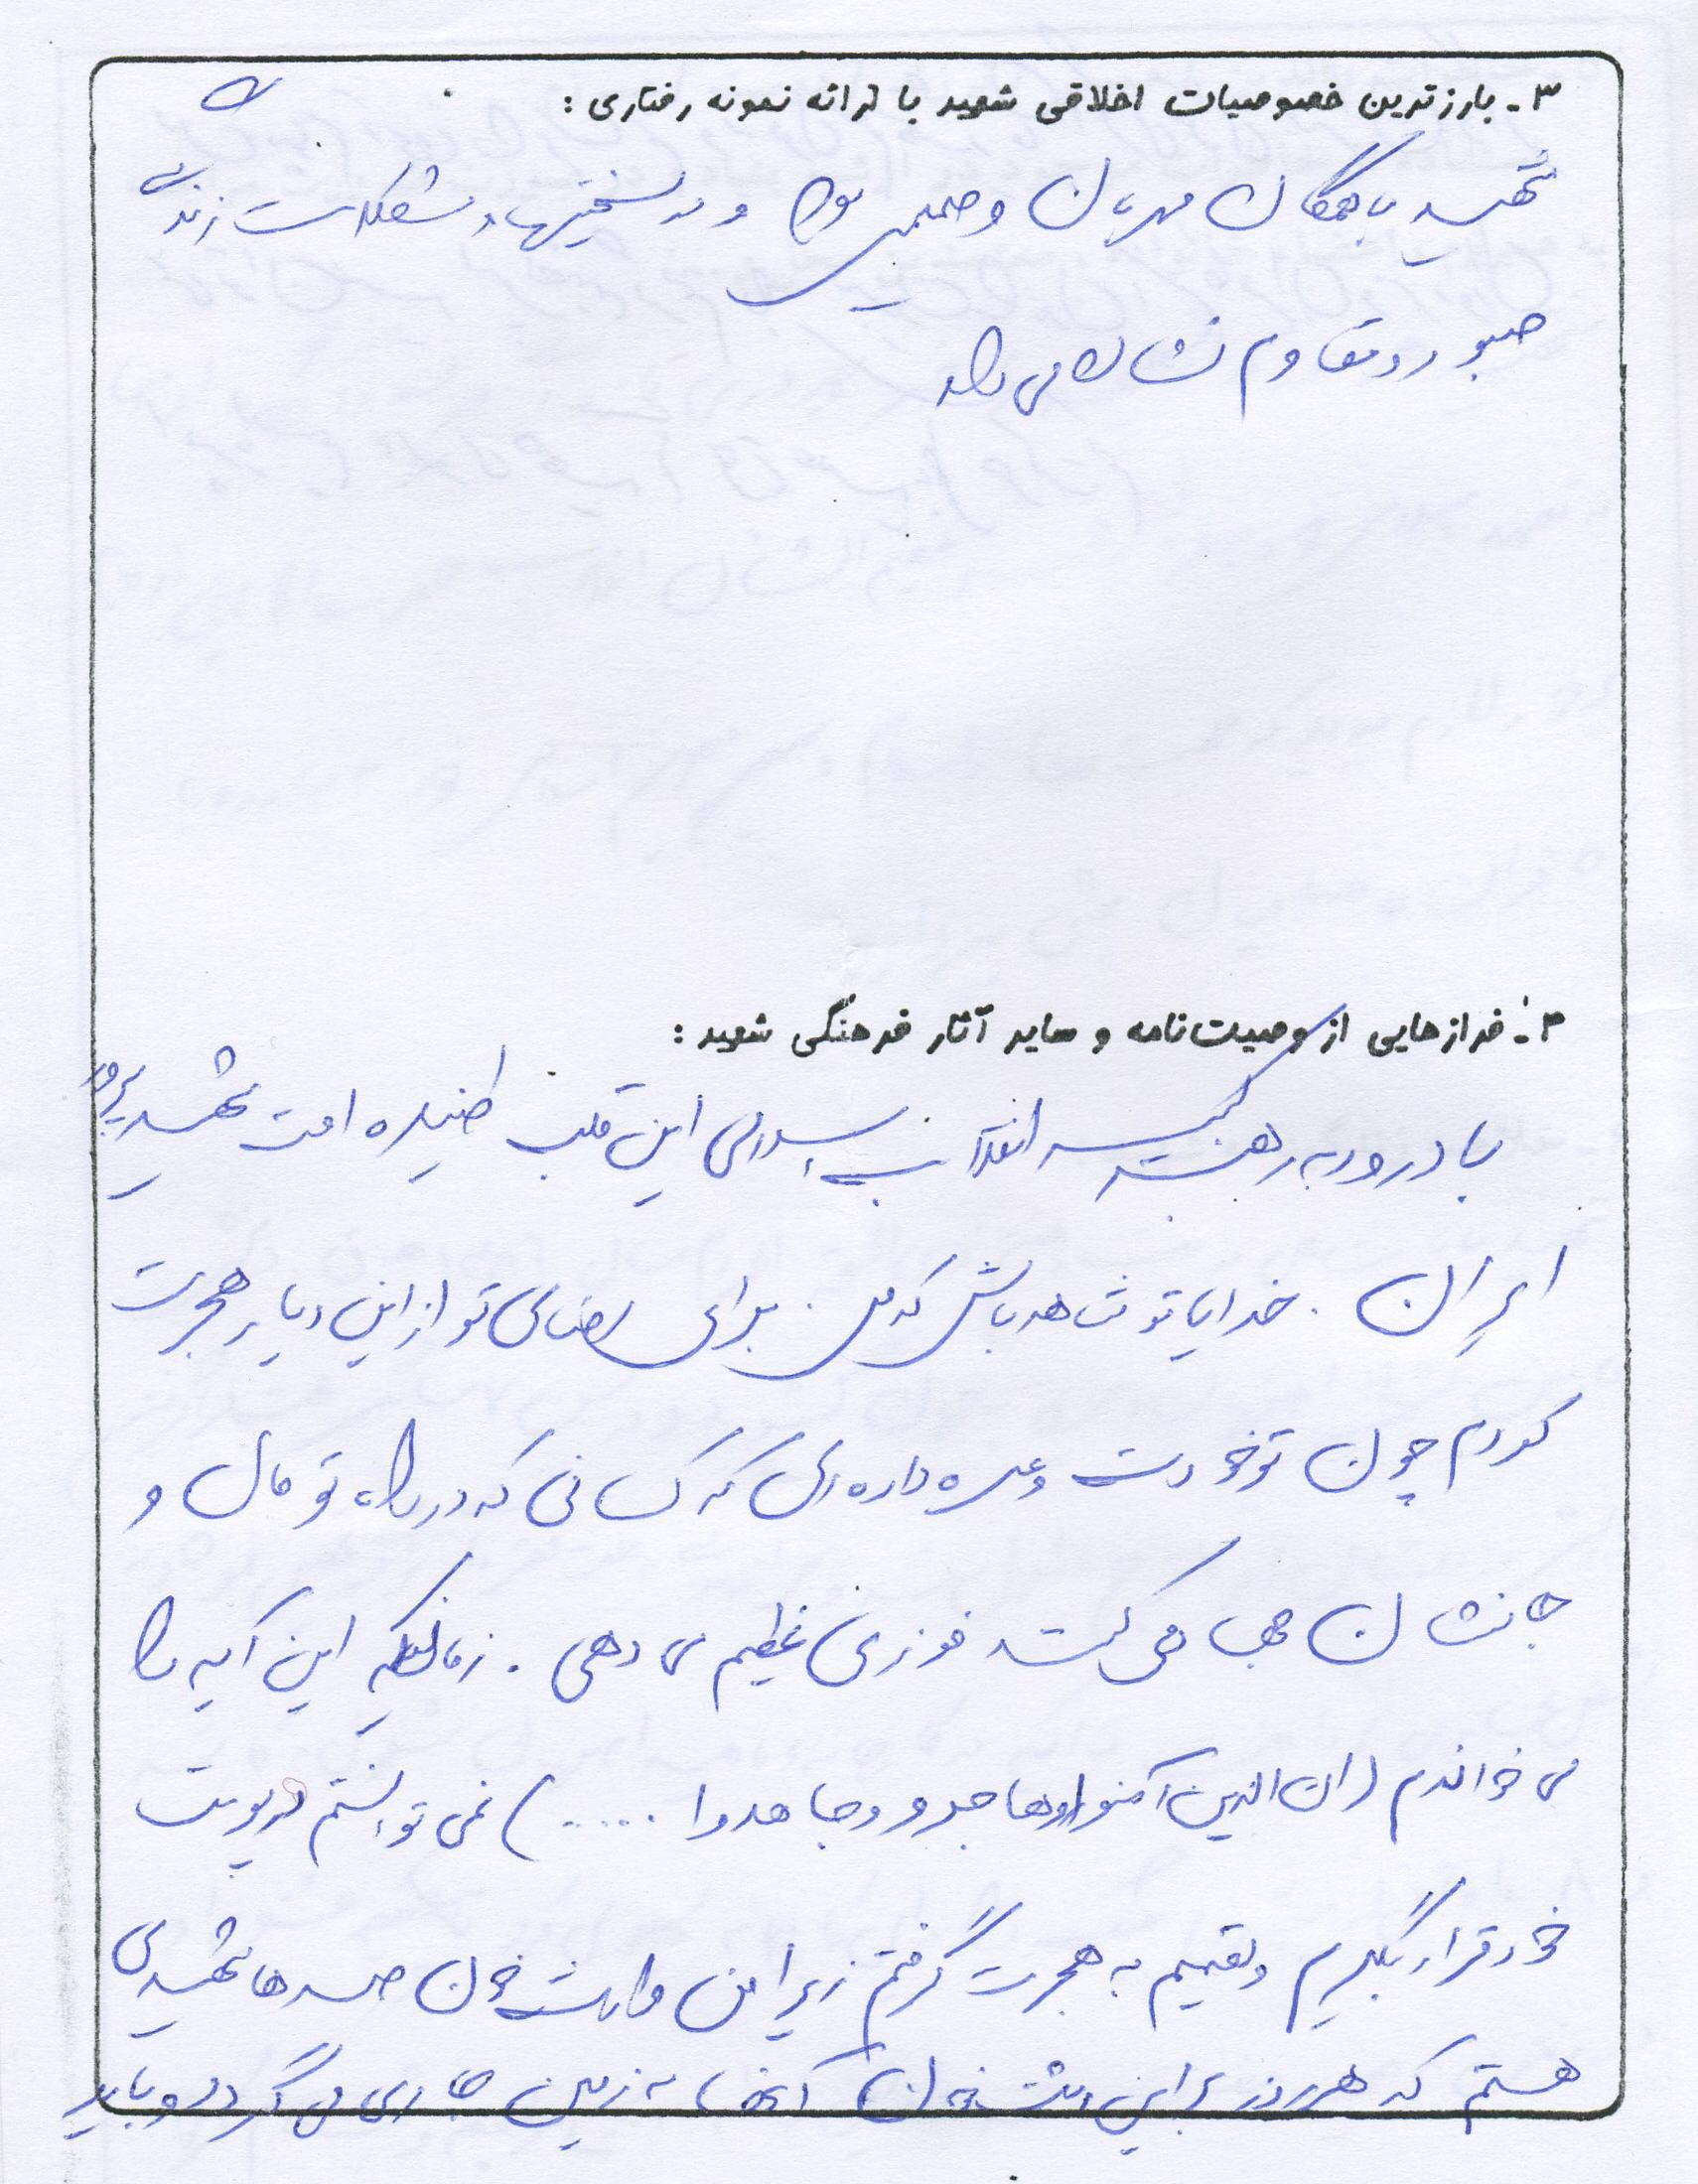 ۳- بارزترین خصوصیات اخلاقی شهید با ارائه نمونه رفتاری :
شهید با همگان مهربان و صمیمی بود و در سختیها و مشکلات زندگی
صبور و مقاوم نشان می داد
۴- فرازهایی از وصیت‌نامه و سایر آثار فرهنگی شهید :
با درود به رهبر کبیر انقلاب اسلامی این قلب طپنده امت شهید پرور
ایران . خدایا تو شاهد باش که من برای رضای تو از این دیار هجرت
کردم چون تو خودت وعده داده ای که کسانی که در راه تو مال و
جانشان هبه می کنند فوزی عظیم می دهی . زمانیکه این آیه را
می خواندم (ان الذین آمنوا وهاجرو وجاهدوا .....) نمی توانستم در پوست
خود قرار بگیرم و تصمیم به هجرت گرفتم زیرا من وارث خون صدها شهیدی
هستم که هر روز بر این خون آنها به زمین جاری می گردد و باید